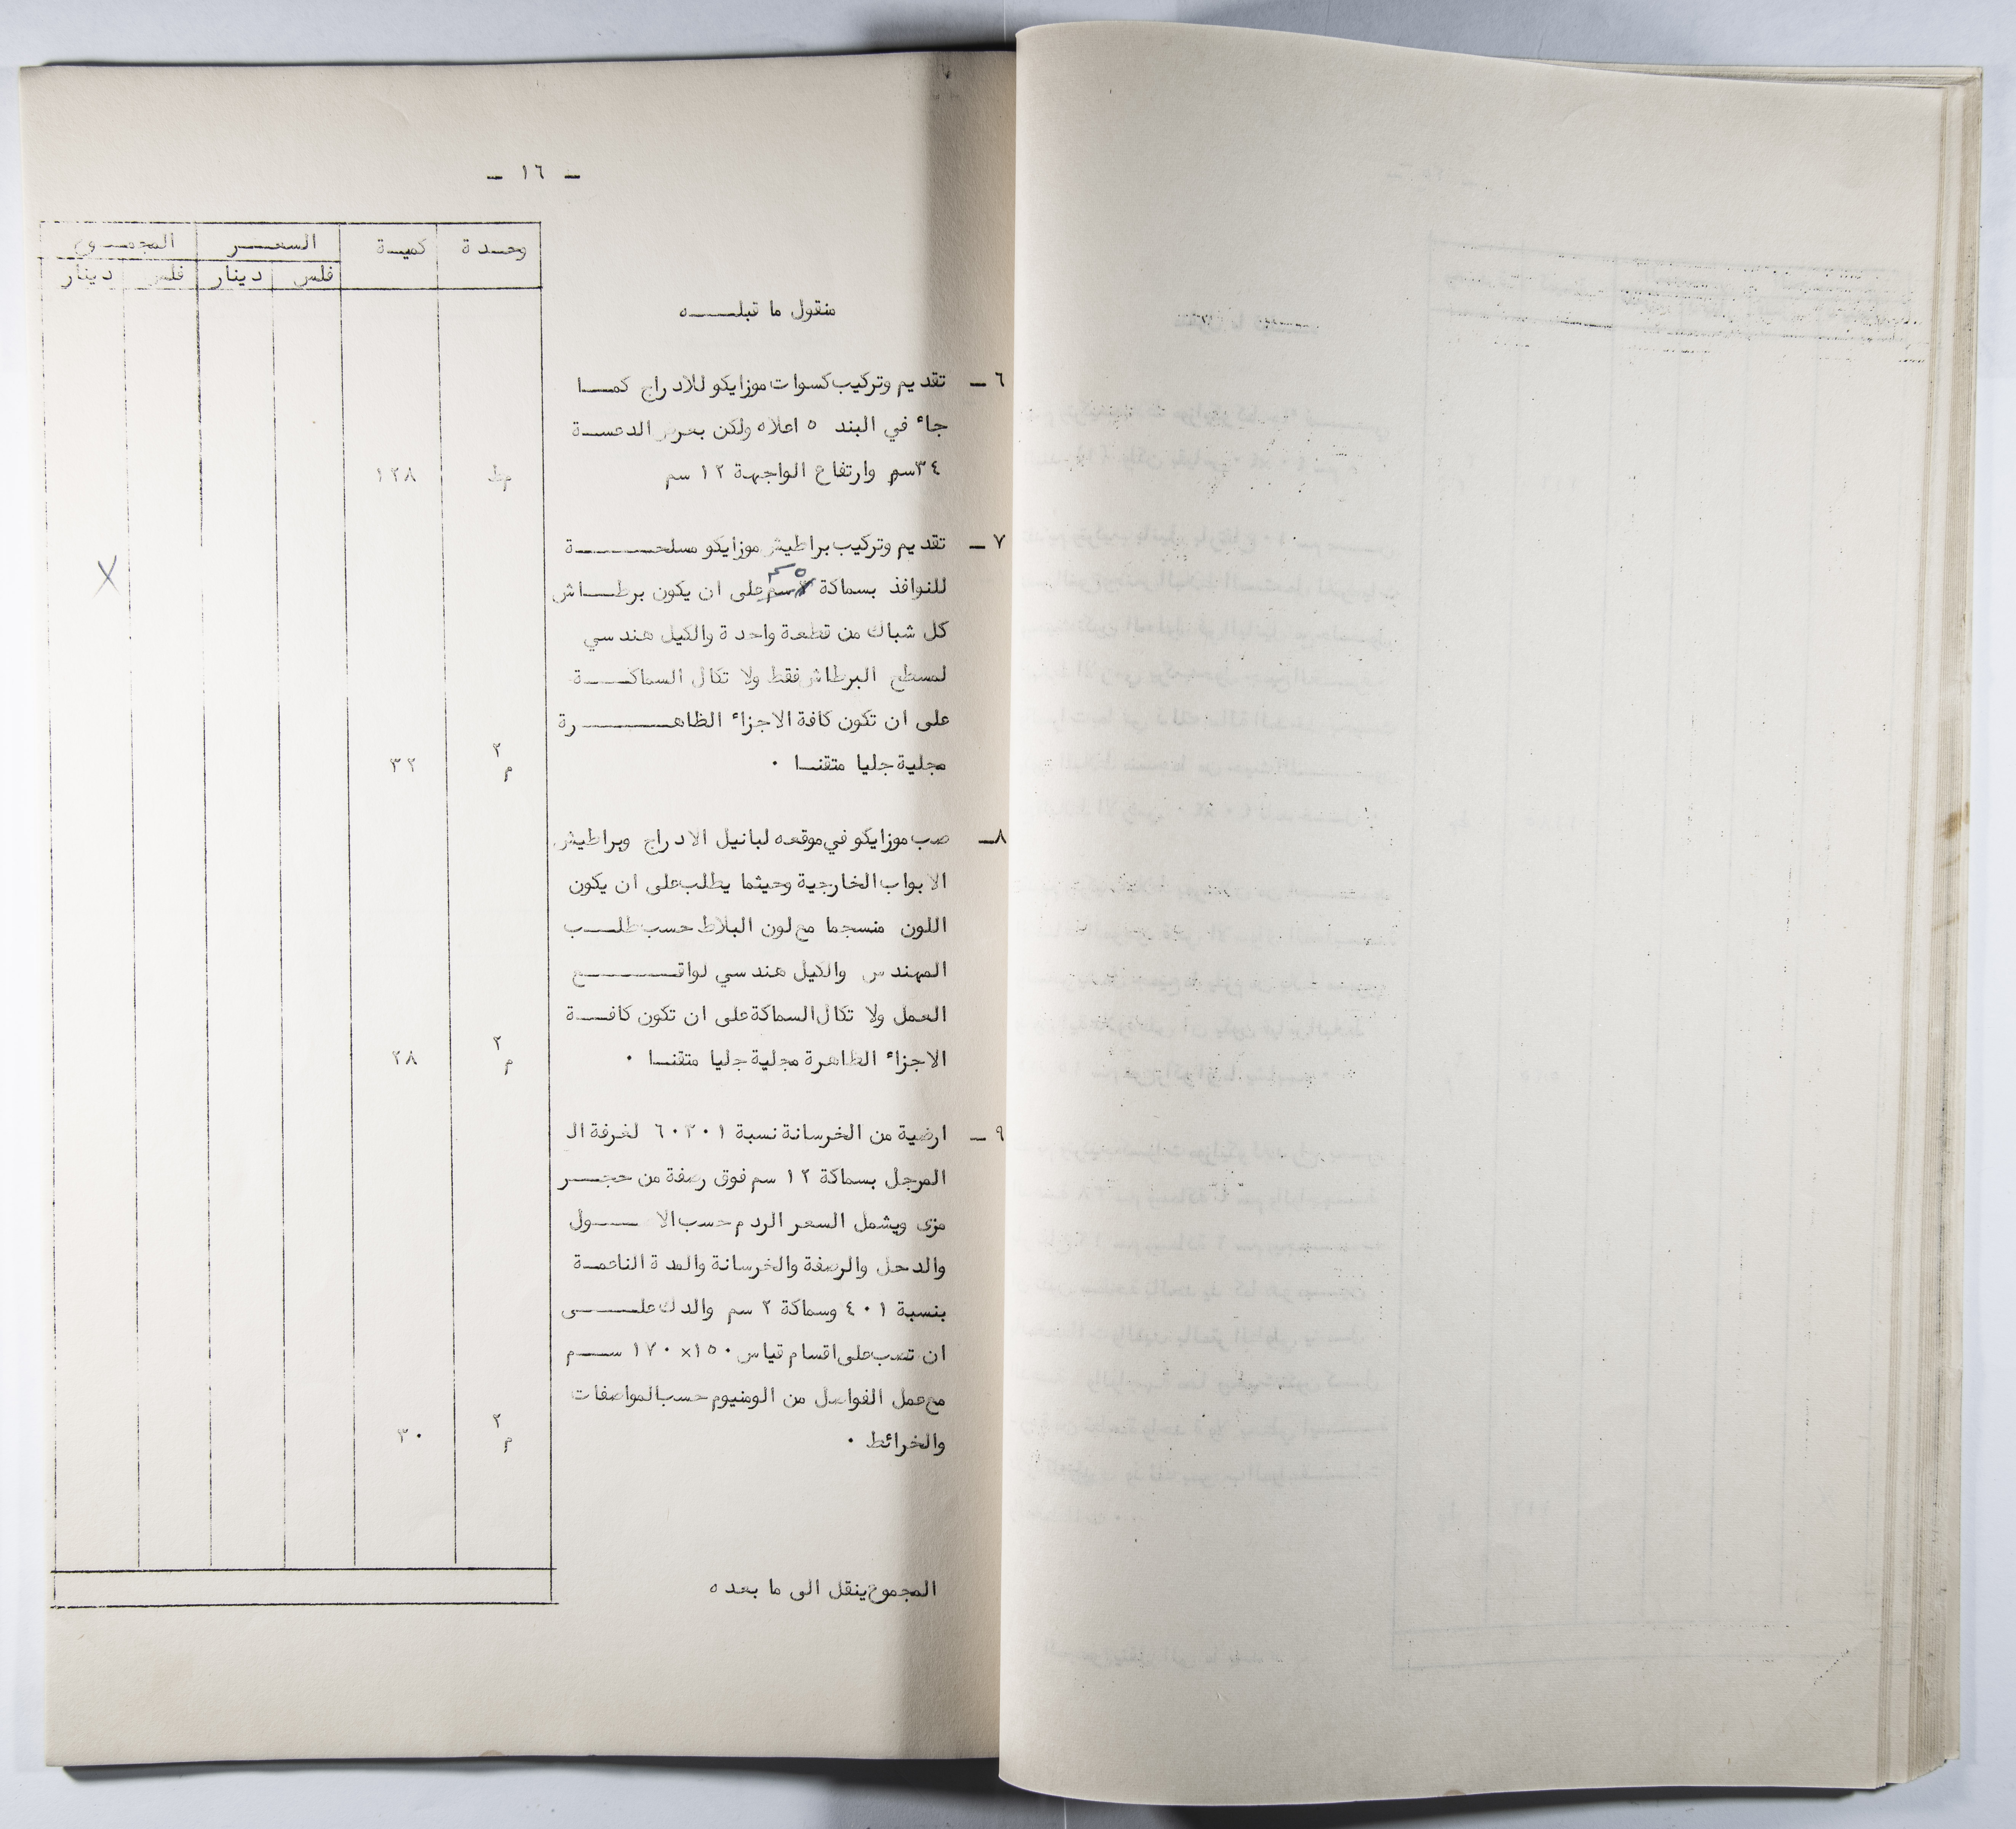 - ١٦ -
وحدة كمية السعر المجموع
فلس دينار فلس دينار
منقول ما قبله
٦ - تقديم وتركيب كسوات موزايكو للادراج كما
جاء في البند ٥ اعلاه ولكن بعرض الدعسة
٣٤سم وارتفاع الواجهة ١٢ سم
مط ١٢٨
٧ - تقديم وتركيب براطيش موزايكو مسلحة
للنوافذ بسماكة ٥سم على ان يكون برطاش
كل شباك من قطعة واحدة والكيل هندسي
لمسطح البرطاش فقط ولا تكال السماكة
على ان تكون كافة الاجزاء الظاهرة
مجلية جليا متقنا .
م٢ ٣٢
X
٨ - صب موزايكو في موقعه لبانيل الادراج وبراطيش
الابواب الخارجية وحيثما يطلب على ان يكون
اللون منسجما مع لون البلاط حسب طلب
المهندس والكيل هندسي لواقع
العمل ولا تكال السماكة على ان تكون كافة
الاجزاء الظاهرة مجلية جليا متقنا .
م٢ ٢٨
٩ - ارضية من الخرسانة نسبة ٦٠٣٠١ لغرفة ال
المرجل بسماكة ١٢ سم فوق رصفة من حجر
مزى ويشمل السعر الردم حسب الاصول
والدحل والرصفة والخرسانة والمدة الناعمة
بنسبة ٤٠١ وسماكة ٢ سم والدك على
ان تصب على اقسام قياس ١٥٠×١٧٠ سم
مع عمل الفواصل من الومنيوم حسب المواصفات
والخرائط .
م٢ ٣٠
المجموع ينقل الى ما بعده